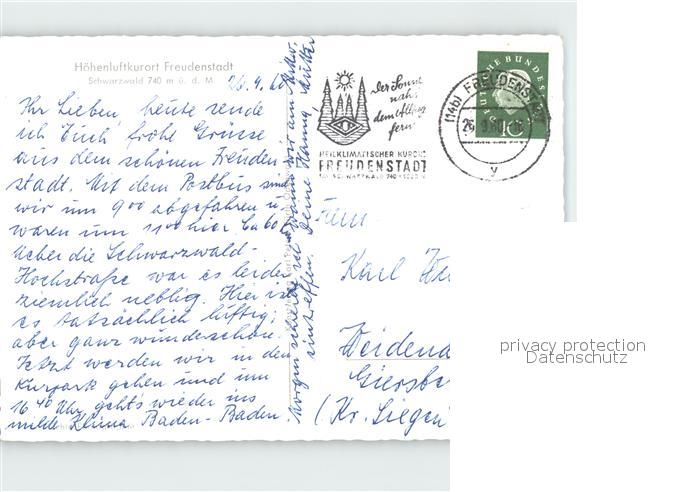 Höhenluftkurort Freudenstadt
Schwarzwald 740 m ü. d. M.
26.9.60
Ihr Lieben, heute sende
ich Euch frohe Grüsse
aus dem schönen Freuden-
stadt. Mit dem Postbus sind
wir um 9⁰⁰ abgefahren u.
waren um 11⁰⁰ hier. Ca 60
ueber die Schwarzwald-
Hochstraße war es leider
ziemlich neblig. Hier ist
es tatsächlich luftig,
aber ganz wunderschön.
Jetzt werden wir in den
Kurpark gehen und um
16⁴⁰ Uhr geht's wieder ins
milde Klima Baden-Baden.
Morgen schreibe ich wann wir am
eintreffen. Deine Hanna,
Der Sonne
nah
dem Alltag
fern
HEILKLIMATISCHER KURORT
FREUDENSTADT
SCHWARZWALD 740
(14b) FREUDENSTADT
26.9.60
y
DEUTSCHE BUNDESPOST
10
Fam.
Karl
Weidena
Giersbe
(Kr. Siegen
privacy protection
Datenschutz